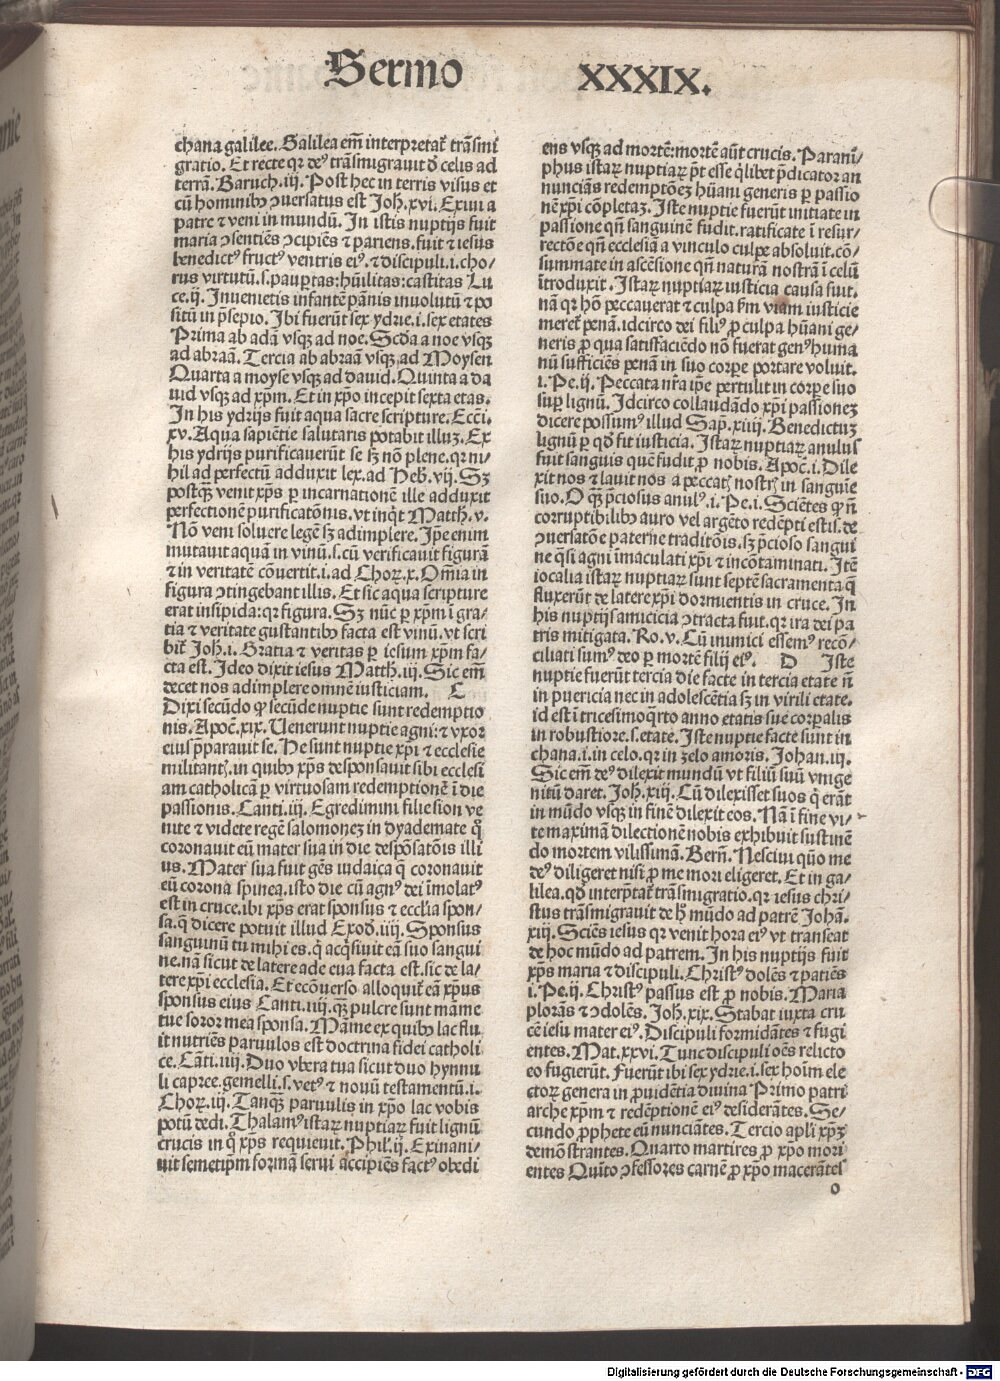 Sermo XXXIX.
chana galilee. Galilea em̄ interpretat᷑ trāsmi
gratio. Et recte qꝛ deꝰ trāsmigrauit ď celis ad
terrā. Baruch. iij. Post hec in terris visus et
cū hominibꝫ ꝯuersatus est Joh̄. xvi. Exiui a
patre et veni in mundū. In istis nuptijs fuit
maria ꝯsentiēs ꝯcipiēs ⁊ pariens. fuit ⁊ iesus
benedictꝰ fructꝰ ventris eiꝰ. ⁊ discipuli .i. cho⸗
rus virtutū .s. paup̄tas: hūilitas: castitas Lu
ce. ij. Inuenietis infantē pānis inuolutū ⁊ po
sitū in p̄sepio. Ibi fuerūt sex ydrie .i. sex etates
Prima ab adā vsqꝫ ad noe. Scďa a noe vsqꝫ
ad abraā. Tercia ab abraā vsqꝫ ad Moysen
Quarta a moyse vsqꝫ ad dauid. Quinta a da
uid vsqꝫ ad xp̄m. Et in xp̄o incepit sexta etas.
In his ydrijs fuit aqua sacre scripture. Ecc̄i.
xv. Aqua sapiētie salutaris potabit illuꝫ. Ex
his ydrijs purificauerūt se sꝫ nō plene. qꝛ ni⸗
hil ad perfectū adduxit lex. ad Heb̄. vij. Sꝫ
postqꝫ̄ venit xp̄s ꝑ incarnationē ille adduxit
perfectionē purificatōnis. vt inq̇t Matth̄. v.
Nō veni soluere legē sꝫ adimplere. Ip̄e enim
mutauit aquā in vinū .s. cū verificauit figurā
⁊ in veritatē cōuertit .i. ad Choꝝ. x. Om̄ia in
figura ꝯtingebant illis. Et sic aqua scripture
erat insipida: qꝛ figura. Sꝫ nūc ꝑ xp̄m ī gra⸗
tia ⁊ veritate gustantibꝫ facta est vinū. vt scri
bit᷑ Joh̄. i. Gratia ⁊ veritas ꝑ iesum xp̄m fa⸗
cta est. Ideo dixit iesus Matth̄. iij. Sic em̄
decet nos adimplere omnē iusticiam. C
Dixi secūdo ꝙ secūde nuptie sunt redemptio
nis. Apoc̄. xix. Uenerunt nuptie agni: ⁊ vxor
eius p̄parauit se. He sunt nuptie xp̄i ⁊ ecclesie
militant᷒. in quibꝫ xp̄s desponsauit sibi ecclesi
am catholicā ꝑ virtuosam redemptionē ī die
passionis. Canti. iij. Egredimini filie sion ve
nite ⁊ videte regē salomoneꝫ in dyademate q̊
coronauit eū mater sua in die despōsatōis illi
us. Mater sua fuit gēs iudaica q̄ coronauit
eū corona spinea. isto die cū agnꝰ dei īmolatꝰ
est in cruce. ibi xp̄s erat sponsus ⁊ eccl̄ia spon⸗
sa. q̄ dicere potuit illud Exoď. iiij. Sponsus
sanguinū tu mihi es. q̇ acq̇siuit eā suo sangui
ne. nā sicut de latere ade eua facta est. sic de la⸗
tere xp̄i ecclesia. Et ecōuerso alloquit᷑ eā xp̄us
sponsus eius Canti. iiij. qꝫ̄ pulcre sunt māme
tue soror mea sponsa. Māme ex quibꝫ lac flu
it nutriēs paruulos est doctrina fidei catholi
ce. Cāti. iiij. Duo vbera tua sicut duo hynnu
li capree. gemelli .s. vetꝰ ⁊ nouū testamentū .i.
Choꝝ. iij. Tanqꝫ̄ paruulis in xp̄o lac vobis
potū dedi. Thalamꝰ istaꝝ nuptiaꝝ fuit lignū
crucis in q̊ xp̄s requieuit. Phil̄. ij. Exinani⸗
uit semetip̄m formā serui accipiēs factꝰ obedi
ens vsqꝫ ad mortē: mortē aūt crucis. Paranī⸗
phus istaꝝ nuptiaꝝ p̄t esse q̇libet p̄dicator an
nunciās redemptōeꝫ hūani generis ꝑ passio
nē xp̄i cōpletaꝫ. Iste nuptie fuerūt initiate in
passione qn̄ sanguinē fudit. ratificate ī resur⸗
rectōe qn̄ ecclesiā a vinculo culpe absoluit. cō⸗
summate in ascēsione qn̄ naturā nostrā ī celū
ītroduxit. Istaꝝ nuptiaꝝ iusticia causa fuit.
nā qꝛ hō peccauerat ⁊ culpa ẜm viam iusticie
meret᷑ penā. idcirco dei filiꝰ ꝓ culpa hūani ge⸗
neris ꝓ qua satisfaciēdo nō fuerat genꝰ huma
nū sufficiēs penā in suo corpe portare voluit.
i. Pe. ij. Peccata nr̄a ip̄e pertulit in corpe suo
suꝑ lignū. Idcirco collaudādo xp̄i passioneꝫ
dicere possumꝰ illud Sap̄. xiiij. Benedictuꝫ
lignū ꝑ qď fit iusticia. Istaꝝ nuptiaꝝ anulus
fuit sanguis quē fudit ꝓ nobis. Apoc̄. i. Dile
xit nos ⁊ lauit nos a peccat᷒ nostr᷒ in sanguīe
suo. O qꝫ̄ p̄ciosus anulꝰ. i. Pe. i. Sciētes ꝙ nō
corruptibilibꝫ auro vel argēto redēpti estis. de
ꝯuersatōe paterne traditōis. sꝫ p̄cioso sangui
ne q̄si agni īmaculati xp̄i ⁊ incōtaminati. Itē
iocalia istaꝝ nuptiaꝝ sunt septē sacramenta q̄
fluxerūt de latere xp̄i dormientis in cruce. In
his nuptijs amicicia ꝯtracta fuit. qꝛ ira dei pa
tris mitigata. Ro. v. Cū inimici essemꝰ recō⸗
ciliati sumꝰ deo ꝑ mortē filij eiꝰ. D Iste
nuptie fuerūt tercia die facte in tercia etate nō
in puericia nec in adolescētia sꝫ in virili etate.
id est ī tricesimoq̇rto anno etatis sue corpalis
in robustiore .s. etate. Iste nuptie facte sunt in
chana .i. in celo. qꝛ in zelo amoris. Johan. iij.
Sic em̄ deꝰ dilexit mundū vt filiū suū vnige
nitū daret. Joh̄. xiij. Cū dilexisset suos q̇ erāt
in mūdo vsqꝫ in finē dilexit eos. Nā ī fine vi⸗
te maximā dilectionē nobis exhibuit sustinē
do mortem vilissimā. Bern̄. Nesciui quō me
deꝰ diligeret nisi ꝓ me mori eligeret. Et in ga⸗
lilea. qď interp̄tat᷑ trāsmigratio. qꝛ iesus chri⸗
stus trāsmigrauit de hͦ mūdo ad patrē Johā.
xiij. Sciēs iesus qꝛ venit hora eiꝰ vt transeat
de hoc mūdo ad patrem. In his nuptijs fuit
xp̄s maria ⁊ discipuli. Christꝰ dolēs ⁊ patiēs
i. Pe. ij. Christꝰ passus est ꝓ nobis. Maria
plorās ⁊ ꝯdolēs. Joh̄. xix. Stabat iuxta cru
cē iesu mater eiꝰ. Discipuli formidātes ⁊ fugi
entes. Mat. xxvi. Tunc discipuli oēs relicto
eo fugierūt. Fuerūt ibi sex ydrie .i. sex hoīm ele
ctoꝝ genera in ꝓuidētia diuina Primo patri
arche xp̄m ⁊ redēptionē eiꝰ desiderātes. Se⸗
cundo ꝓphete eū nunciātes. Tercio apl̄i xp̄ꝫ
demōstrantes. Quarto martires ꝓ xp̄o mori
entes Quīto ꝯfessores carnē ꝓ xp̄o macerātes
o
Digitalisierung gefördert durch die Deutsche Forschungsgemeinschaft - DFG